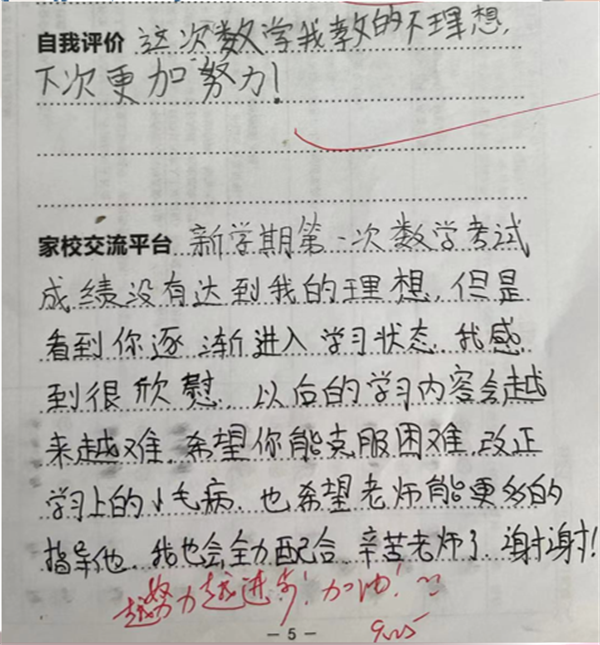 自我评价 这次数学我考的不理想,
下次更加努力!
家校交流平台 新学期第一次数学考试
成绩没有达到我的理想,但是
看到你逐渐进入学习状态.我感
到很欣慰.以后的学习内容会越
来越难.希望你能克服困难.改正
学习上的小毛病.也希望老师能更多的
指导他.我也会全力配合.辛苦老师了.谢谢!
越努力越进步!加油!
9.25
— 5 —